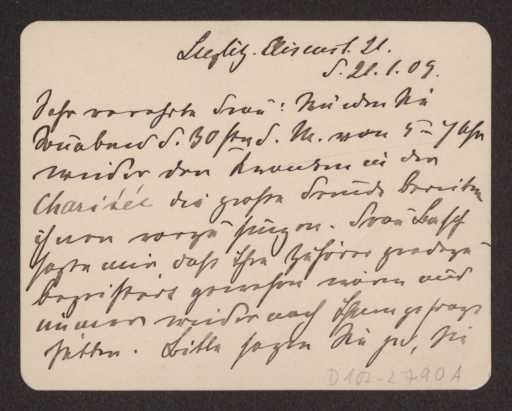 Steglitz. Elisenst. 21.
d. 21.1.09.
Sehr verehrte Frau! Würden Sie
Sonnabend d. 30sten d. M. von 5–7 Uhr
wieder den Kranken in der
Charitée die große Freude bereiten
ihnen vorzusingen. Frau
sagte mir daß Ihre Zuhörer geradezu
begeistert gewesen wären und
immer wieder nach Ihnen gefragt
hätten. Bitte sagen Sie zu, Sie
D 102-2790A